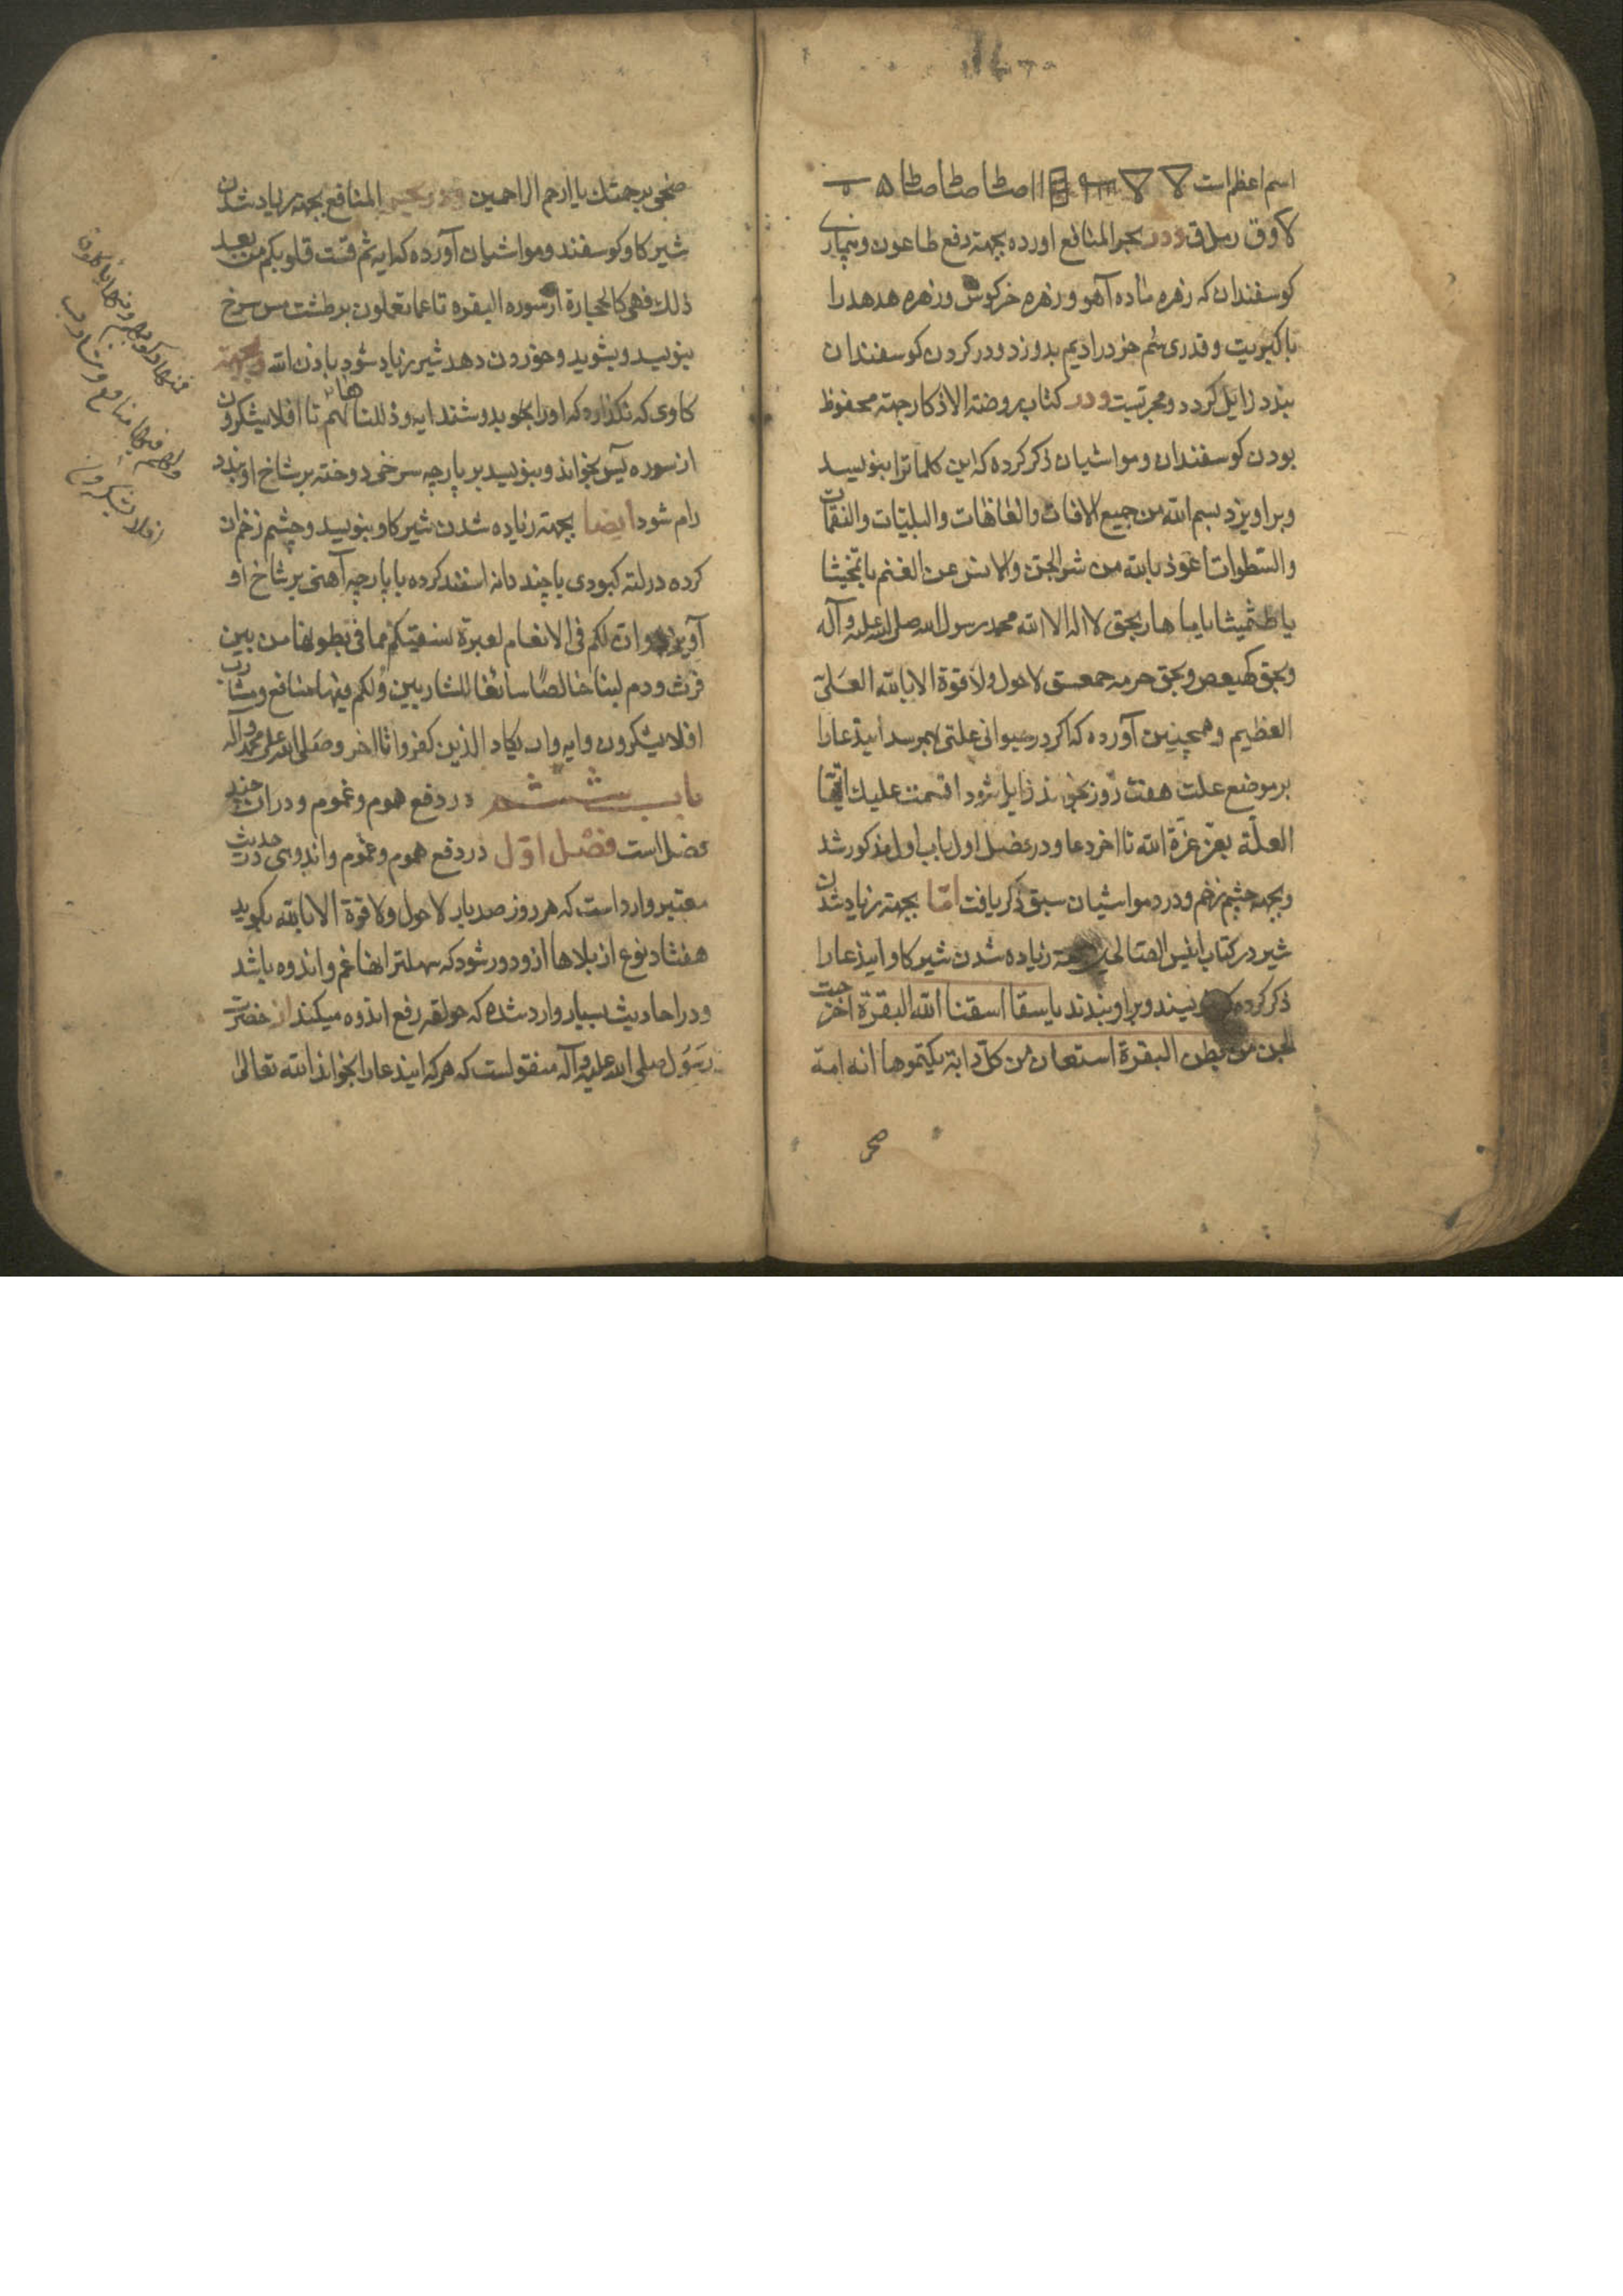 اسم اعظم است
لاوق ردر بحر المنافع اورده بجهته دفع طاعون و بیماری
کوسفندان که زهره ماده آهو و زهره خرکوش و زهره هدهد را
با کبریت و قدری سم خر در ادیم بدوزد و در کردن کوسفندان
بندد زایل کردد و مجربست ودر کتاب روضة الاذکار جهته محفوظ
بودن کوسفندان و مواشیان ذکر کرده که این کلماترا بنویسد
وبراویزد بسم الله من جمیع الافات والغاغات والبلیّات والنقمات
والسّطوات اعوذ بالله من شر الجن والانس عن الغنم یا
یا یا یا هار بحق لا اله الا الله محمد رسول الله صلی الله علیه وآله
وبحق کهیعص وبحق حرمه حمعسق لا حول ولا قوة الا بالله العَلیّ
العظیم وهمچنین آورده که اکر در حیوانی علتی بهمرسد ایندعارا
بر موضع علت هفت روز بخوانند زایل شود اقسمت علیک ایّتها
العلّة بعزّ عزّة الله تا اخر دعا و در فصل اول باب اول مذکور شد
وبجهته چشم زخم ودرد مواشیان سبق ذکر یافت امّا بجهته زیاد شدن
شیر در کتاب انیس الصالحین بجهته زیاده شدن شیر کاو ایندعارا
ذکر کرده که بنویسند و براو بندند یا سقا اسقنا الله البقرة اخرجت
اللبن من بطن البقرة استعان من کلّ دابة یکتموها انه امة
صحی
صحی برحمتک یا ارحم الراحمین ودر بحر المنافع بجهته زیاد شدن
شیر کاو وکوسفند و مواشیان آورده که ایه ثم قست قلوبکم من بعد
ذلک فهی کالحجارة از سوره البقره تا عما تعملون بر طشت مس سرخ
بنویسد و بشوید و خوردن دهد شیر زیاد شود باذن الله وبجهته
کاوی که نکذارد که او را بدوشند ایه وذللناها لهم تا افلا یشکرون
از سوره یس بخواند و بنویسد بر پارچه سرخی دوخته بر شاخ او بندد
رام شود ایضا بجهته زیاده شدن شیر کاو بنویسد و چشم زخم ان
کرده در لته کبودی با چند دانه اسفند کرده با پارچه آهنی بر شاخ او
آویزد وان لکم فی الانعام لعبرة نسقیکم مما فی بطونها من بین
فرث ودم لبنا خالصًا سائغا للشاربین ولکم فیها منافع ومشارب
افلا یشکرون وایه وان یکاد الذین کفروا تا اخر وصلی الله علی محمد وآله
باب ششم در دفع هموم وغموم و در ان چند
فصل است فصل اوّل در دفع هموم وغموم واندوهی در حدیث
معتبر وارد است که هر روز صد بار لا حول ولا قوة الا بالله بکوید
هفتاد نوع از بلاها از و دور شود که سهلتر انها غم و اندوه باشد
و در احادیث بسیار وارد شده که حولقه رفع اندوه میکند از حضرت
رسَول صلی الله علیه وآله منقولست که هر که ایندعارا بخواند الله تعالی
فمنها رکوبهم ومنها یأکلون
ولهم فیها منافع ومشارب
افلا یشکرون